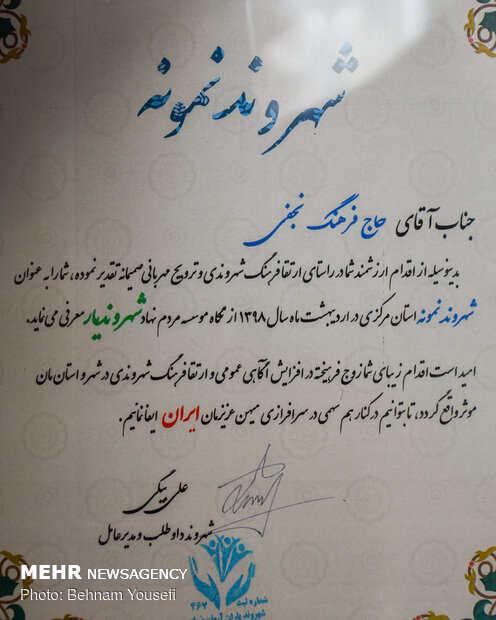 شهروند نمونه
جناب آقای حاج فرهنگ نجفی
بدینوسیله از اقدام ارزشمند شما در راستای ارتقا فرهنگ شهروندی و ترویج مهربانی صمیمانه تقدیر نموده، شما را به عنوان
شهروند نمونه استان مرکزی در اردیبهشت ماه سال ۱۳۹۸ از نگاه موسسه مردم نهاد شهروندیار معرفی می نماید.
امید است اقدام زیبای شما زوج فرهیخته در افزایش آگاهی عمومی و ارتقا فرهنگ شهروندی در شهر و استان مان
موثر واقع گردد، تا بتوانیم در کنار هم سهمی در سرافرازی میهن عزیزمان ایران ایفا نمائیم.
علی بیگی
شهروند داوطلب و مدیرعامل
شماره ثبت
۴۶۲
شهروند یاران
MEHR NEWSAGENCY
Photo: Behnam Yousefi